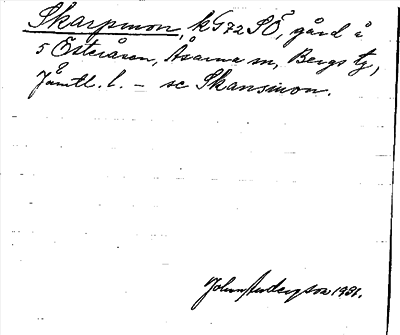 Skarpmon, kG72SÖ, gård å
5 Österåsen, Åsarna sn, Bergs tg,
Jämtl. l. – se Skansmon.
John Anderzon 1931.